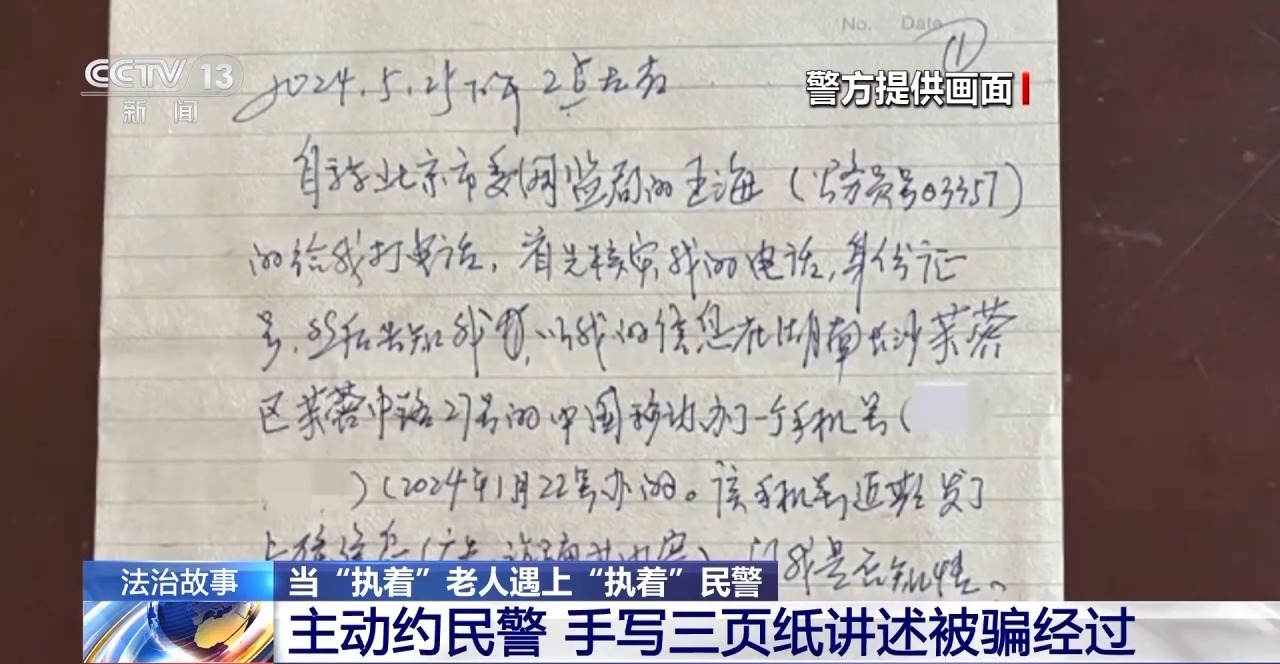 No. Date
①
CCTV 13
新闻
警方提供画面
2024.5.25下午2点左右
自称北京市委网监局的王海（公务员号03357）
的给我打电话，首先核实我的电话，身份证
号，然后告知我，以我的信息在湖南长沙芙蓉
区芙蓉中路27号的中国移动办了一个手机号（
）（2024年1月22号办的。该手机号近期发了
问我是否知情。
法治故事
当“执着”老人遇上“执着”民警
主动约民警 手写三页纸讲述被骗经过